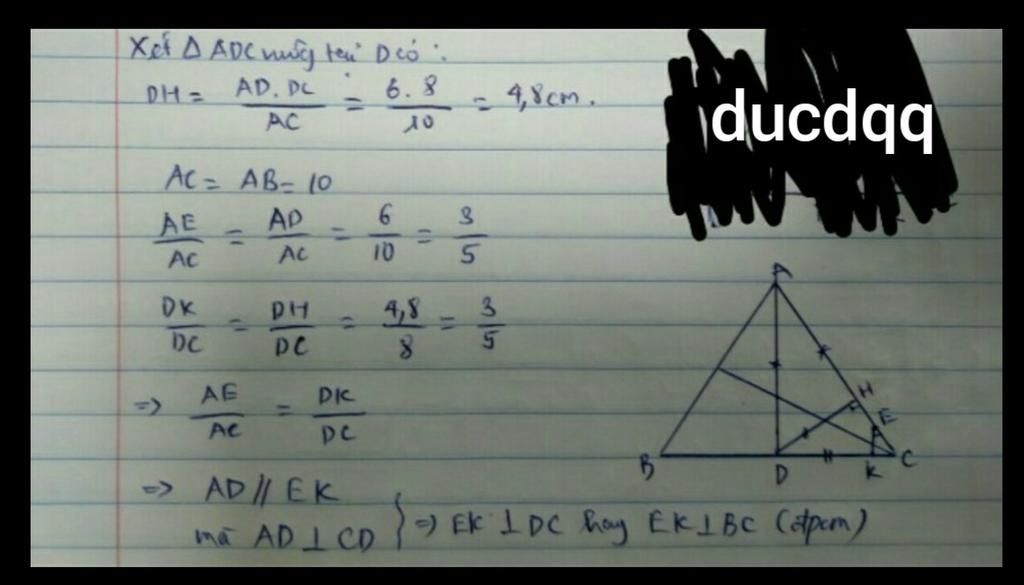 Xét Δ ADC vuông tại D có:
DH = AD.DC / AC = 6.8 / 10 = 4,8cm.
ducdqq
AC = AB = 10
AE / AC = AD / AC = 6 / 10 = 3 / 5
DK / DC = DH / DC = 4,8 / 8 = 3 / 5
=> AE / AC = DK / DC
=> AD // EK
mà AD ⊥ CD } => EK ⊥ DC hay EK ⊥ BC (đpcm)
A
H
E
B
D
K
C